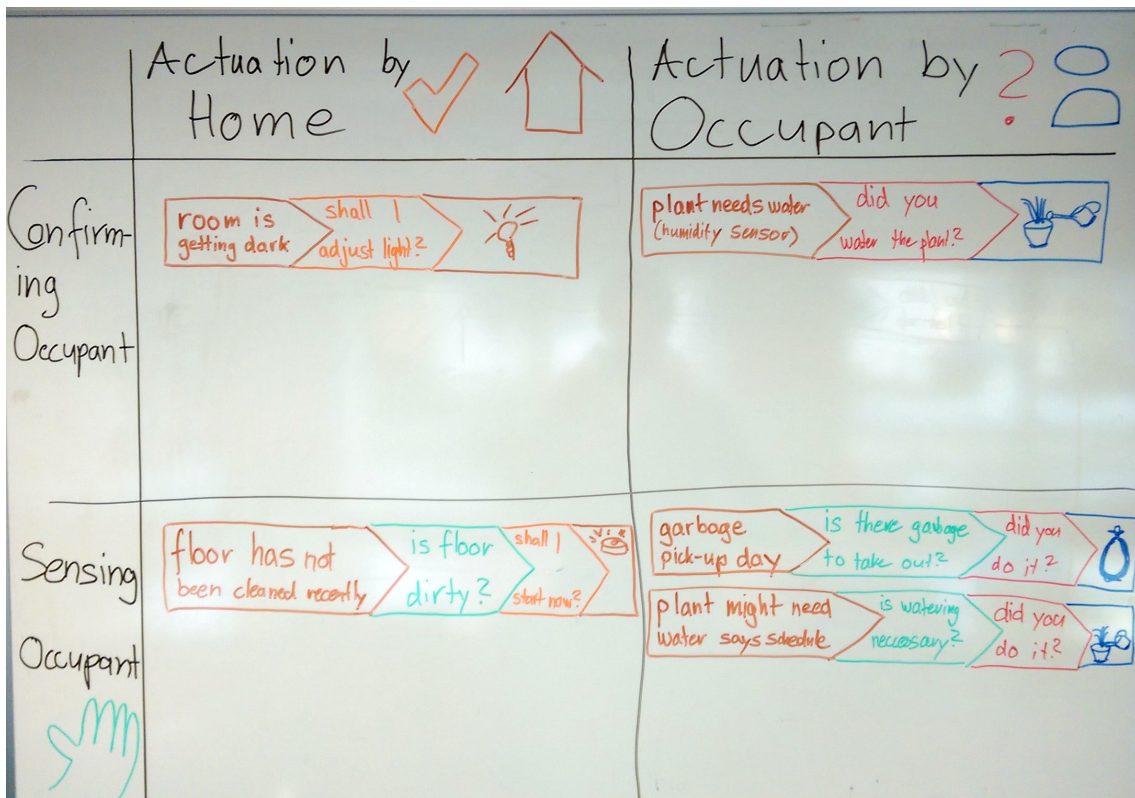 Actuation by
Home
Actuation by ?
Occupant
Confirm-
ing
Occupant
room is
getting dark
shall I
adjust light?
plant needs water
(humidity sensor)
did you
water the plant?
Sensing
Occupant
floor has not
been cleaned recently
is floor
dirty?
shall I
start now?
garbage
pick-up day
is there garbage
to take out?
did you
do it?
plant might need
water says schedule
is watering
neccessary?
did you
do it?